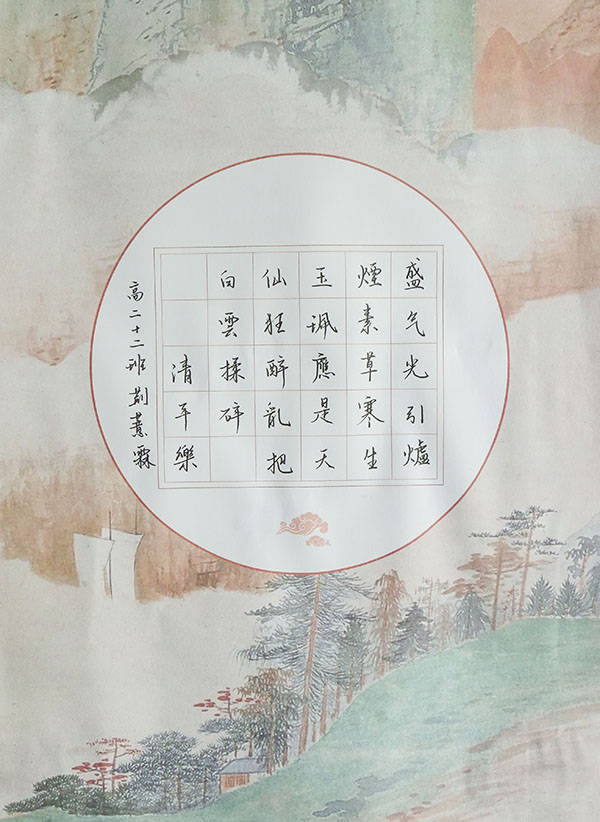 盛气光引爐
煙素草寒生
玉珮應是天
仙狂醉亂把
白雲揉碎
清平樂
高二十二班 荆霖